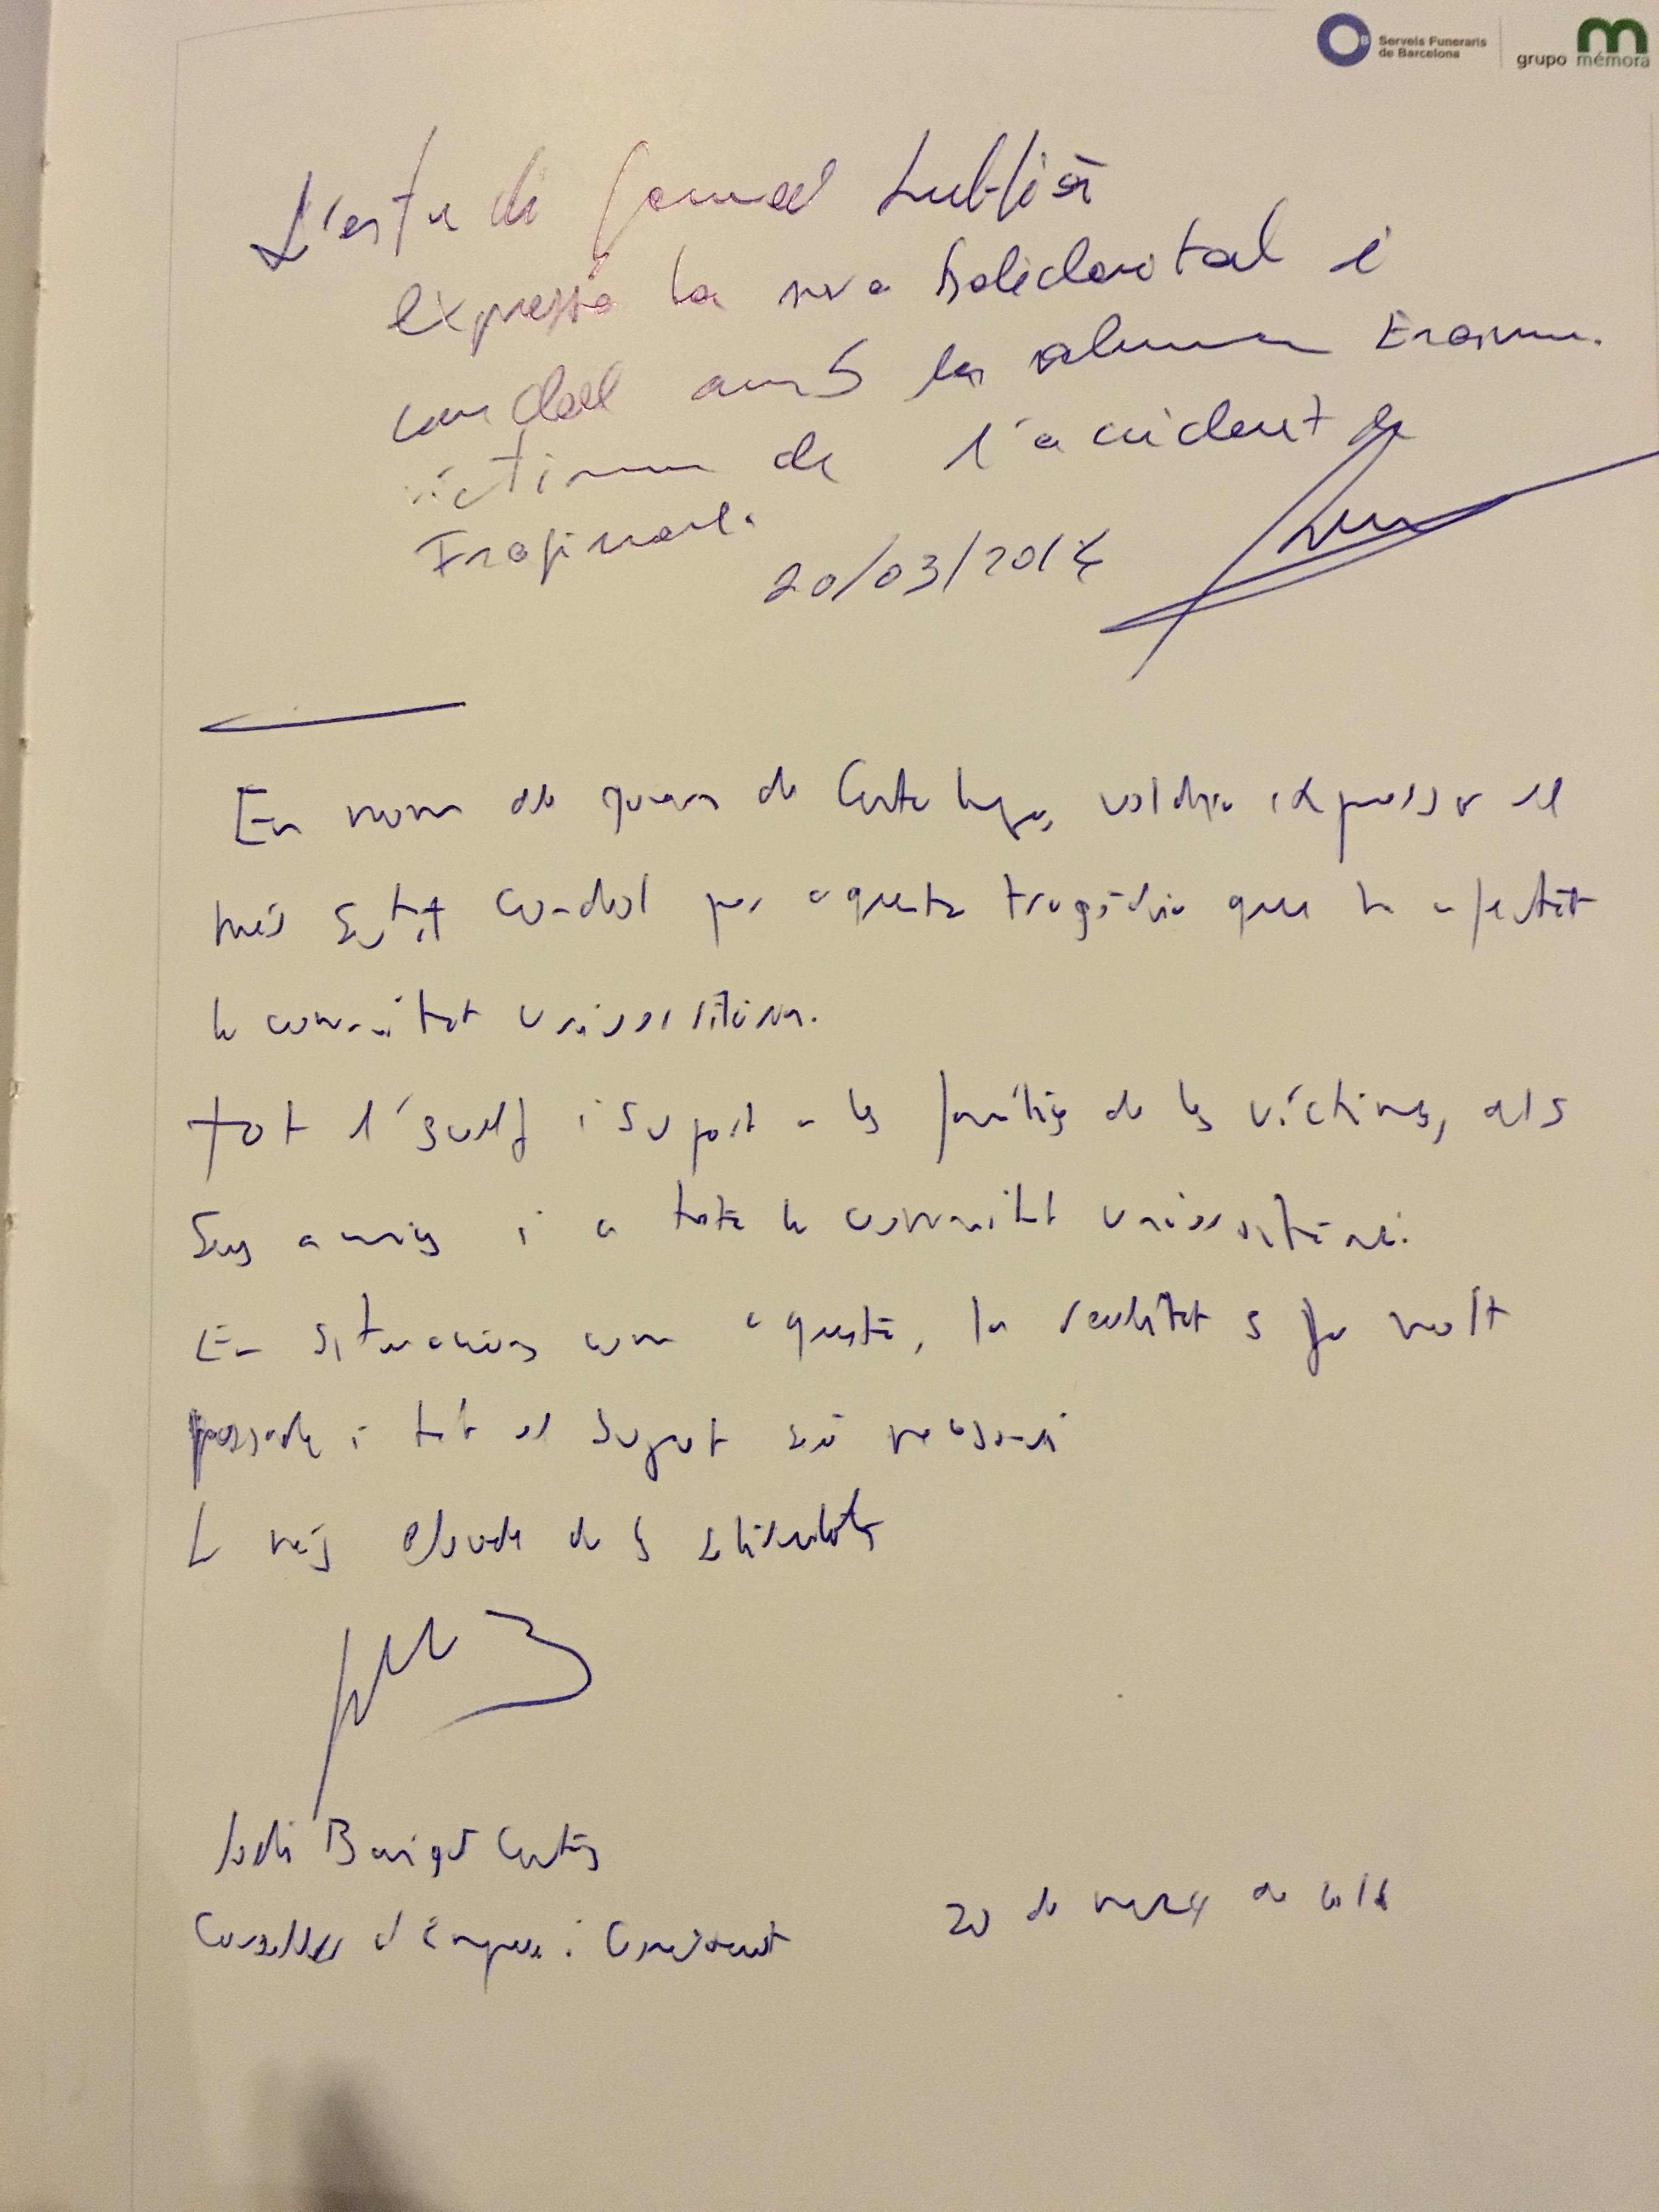 Serveis Funeraris
de Barcelona
grupo mémora
L'estudi General Lul·lià
expressa la seva solidaritat i
condol amb les alumnes Erasmus
víctimes de l'accident de
Freginals.
20/03/2016
En nom del govern de Catalunya, voldria expressar el
més sentit condol per aquesta tragèdia que ha afectat
la comunitat universitària.
Tot l'escalf i suport a les famílies de les víctimes, als
seus amics i a tota la comunitat universitària.
En situacions com aquesta, la realitat es fa molt
pesada i tot el suport serà necessari
La més elevada de les
Jordi Baiget Cantons
Conseller d'Empresa i Coneixement
20 de març de 2016